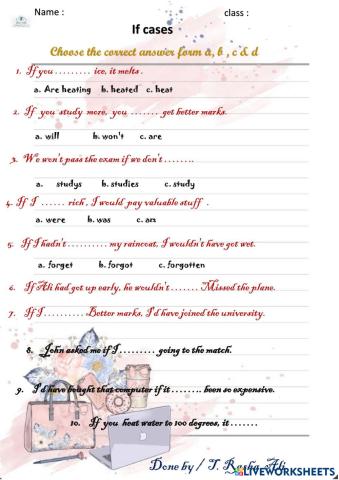 Name :
class :
If cases
Choose the correct answer form a, b , c & d
1. If you ……… ice, it melts .
a. Are heating b. heated c. heat
2. If you study more, you ……. get better marks.
a. will b. won't c. are
3. We won't pass the exam if we don't ……..
a. studys b. studies c. study
4. If I …… rich , I would pay valuable stuff .
a. were b. was c. am
5. If I hadn't ………. my raincoat, I wouldn't have got wet.
a. forget b. forgot c. forgotten
6. If Ali had got up early, he wouldn't ……. Missed the plane.
7. If I ………. Better marks, I'd have joined the university.
8. John asked me if I ……… going to the match.
9. I'd have bought that computer if it ……. been so expensive.
10. If you heat water to 100 degrees, it …….
Done by / T. Rasha Ali
LIVEWORKSHEETS